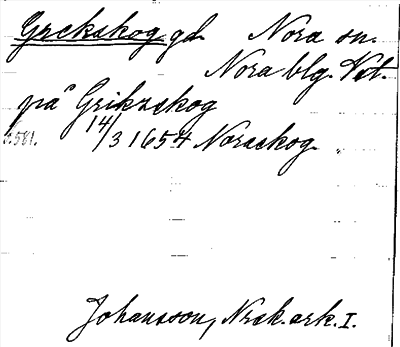 Grekskog gd. Nora sn.
Nora blg. Vstl.
på Grikzskog
s. 581. 14/3 1654 Noraskog. „
Johansson, Nrsk. ark. I.